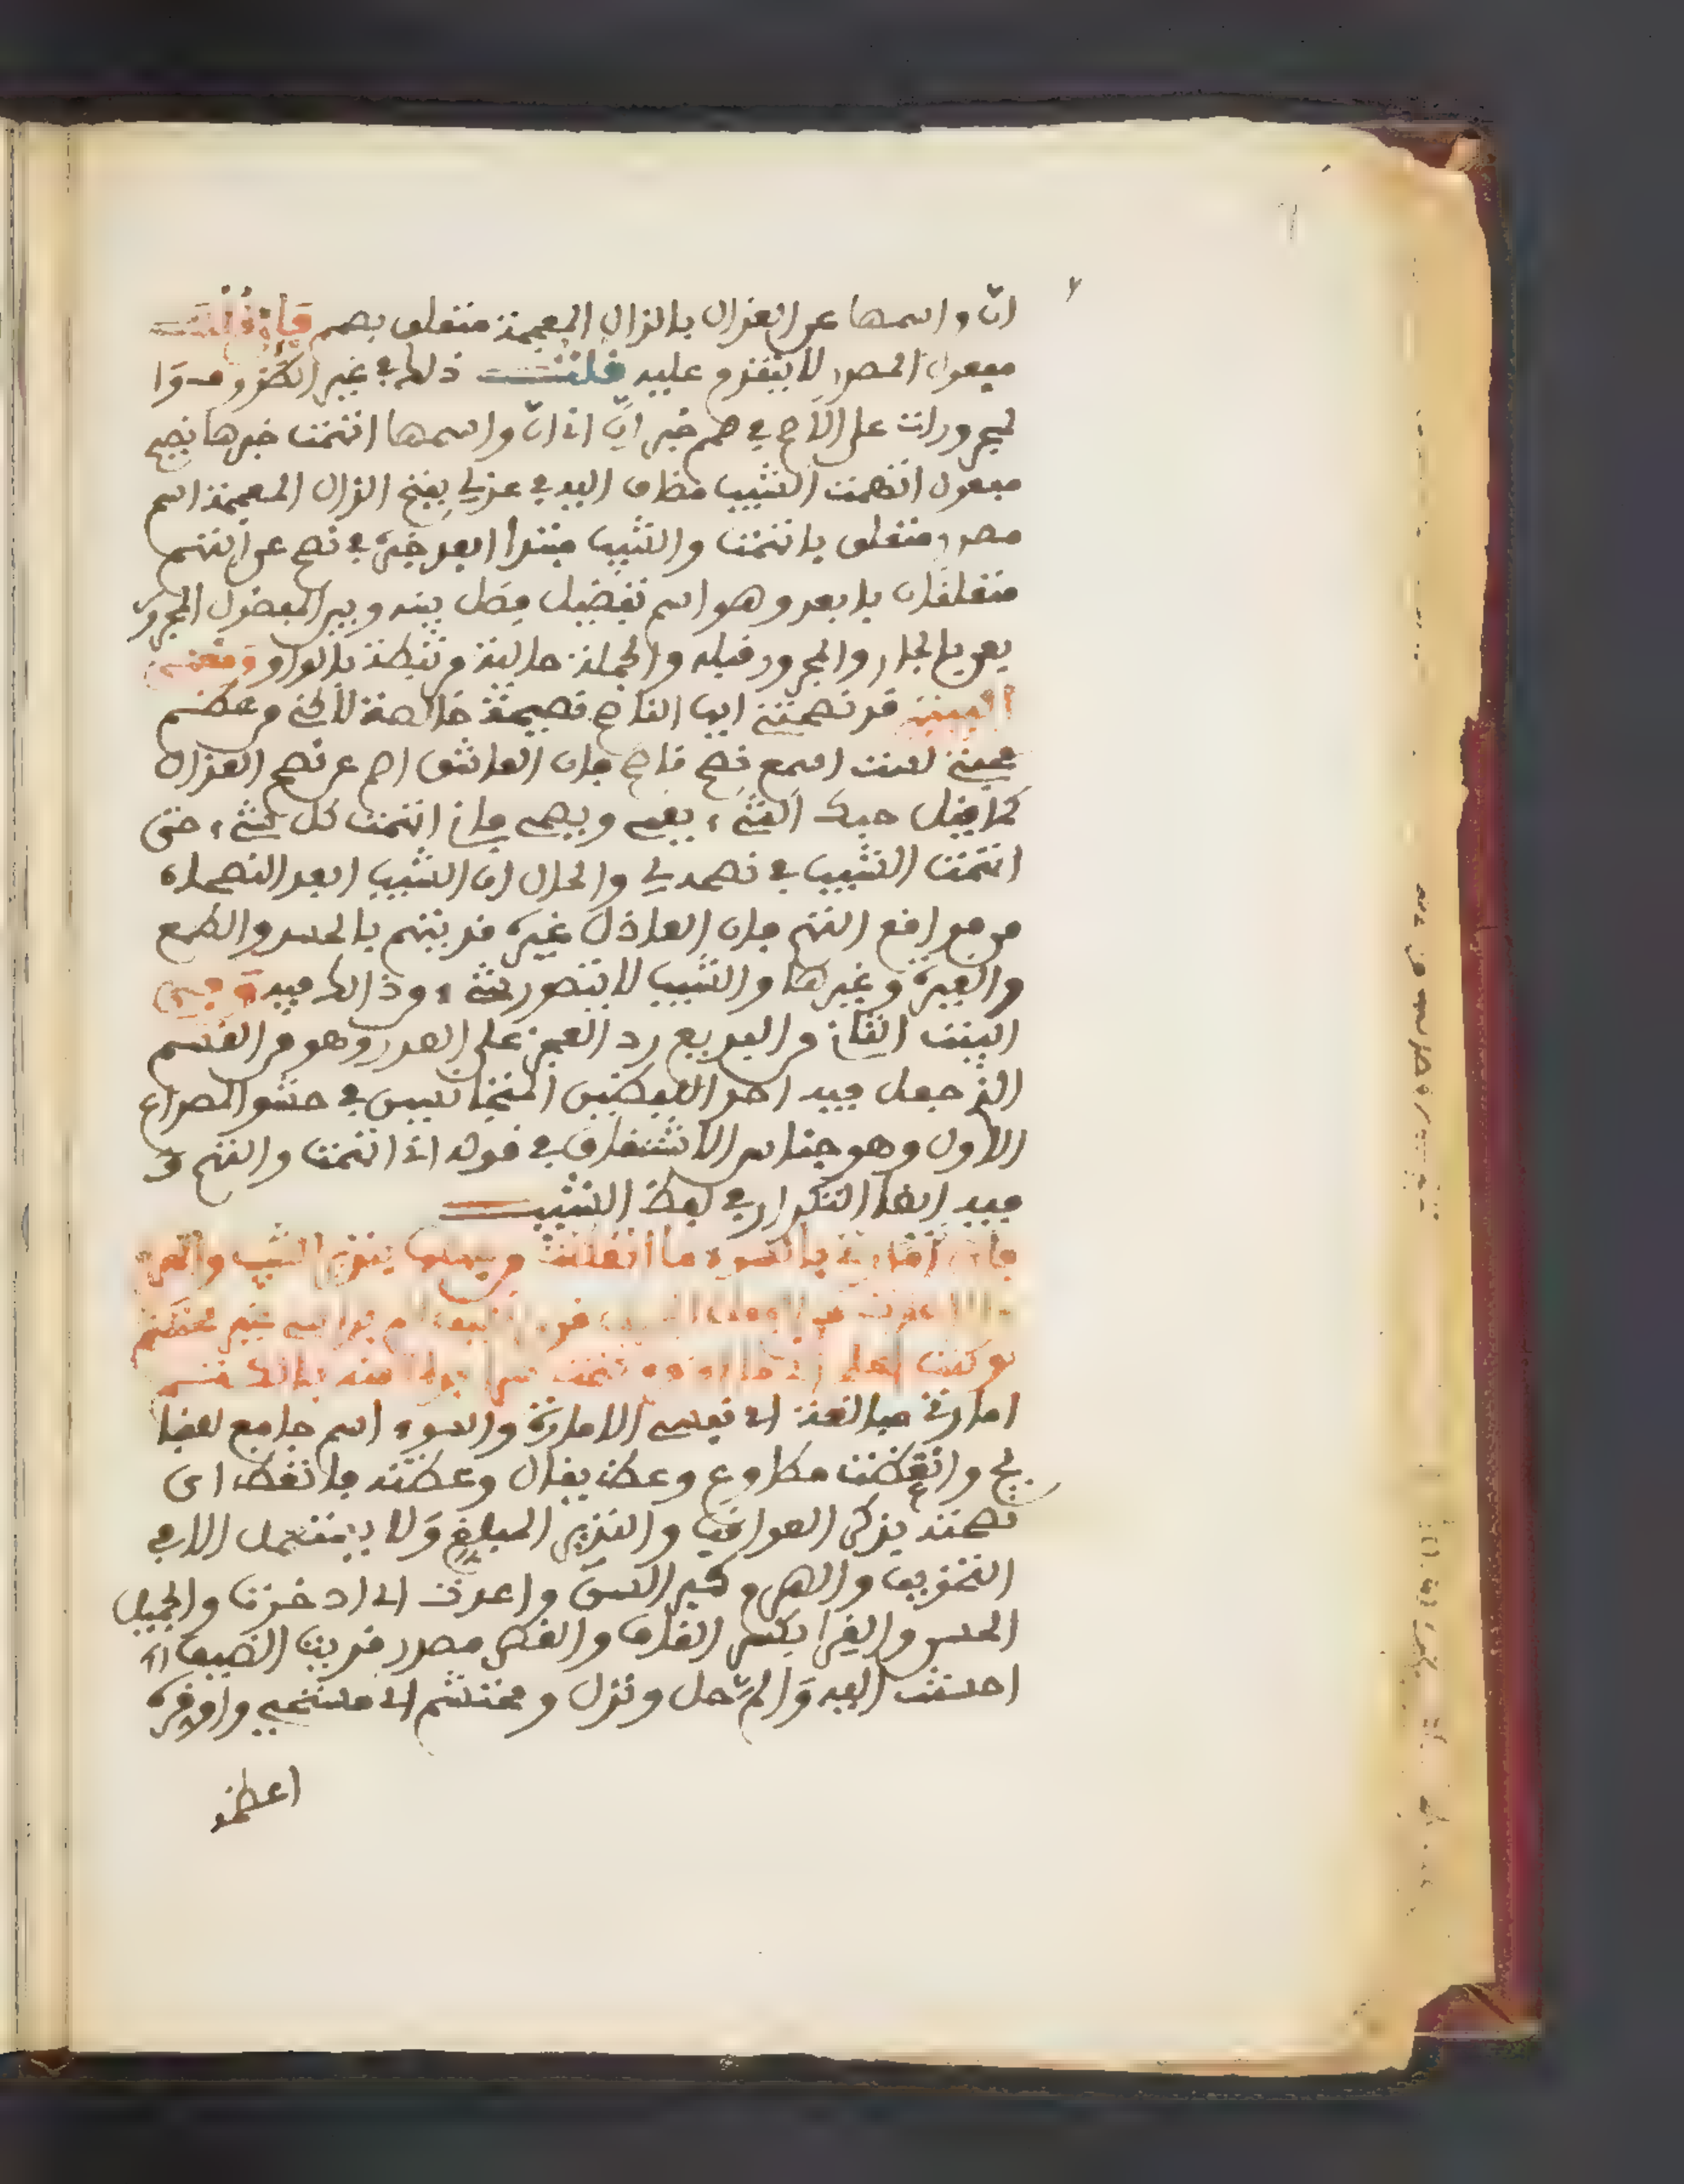 ان واسمها عن العذال بالذال المعجمة متعلق بصمم فإن قلت
معمول المصدر لا يتقدم عليه قلت ذلك في غير الظروف وا
لمجرورات على الاصح في صمم خبر ان اني ان واسمها اتهمت خبرها نصيح
مفعول اتهمت الشيب مضاف اليه في عذلي بفتح الذال المعجمة اسم
مصدر متعلق باتهمت والشيب مبتدا ابعد خبره في نصح عن التهم
متعلقان بابعد وهو اسم تفضيل فصل بينه وبين المفضول المجرور
بمن بالجار والمجرور قبله والجملة حالية مرتبطة بالواو ومعنى
البيت قد نصحتني ايها الناصح نصيحة خالصة لاكن من عظم
محبتي لست اسمع نصح ناصح فان العاشق اصم عن نصح العذال
كما قيل حبك الشيء يعمي ويصم فاني اتهمت كل شيء حتى
اتهمت الشيب في نصحه لي والحال ان الشيب ابعد النصحاء
من مواقع التهم فان العاذل غيره قد يتهم بالحسد والطمع
والغيرة وغيرها والشيب لا يتصور شيء من ذالك فيه وفي
البيت الثاني من البديع رد العجز على الصدر وهو من القسم
الذي جعل فيه احد اللفظين المتجانسين في حشو المصراع
الاول وهو جناس الاشتقاق في قوله اني اتهمت والتهم و
فيه ايضا التكرار في لفظ الشيب
فان امارتي بالسوء ما اتعظت من جهلها بنذير الشيب والهرم
ولا اعدت من الفعل الجميل قرى ضيف الم براسي غير محتشم
لو كنت اعلم اني ما اوقره كتمت سرا بدا لي منه بالكتم
امارتي مبالغة اي نفسي الامارة والسوء اسم جامع للقبا
يح واتعظت مطاوع وعظ يقال وعظته فاتعظ اي
نصحته بذكر العواقب والنذير المبلغ ولا يستعمل الا في
التخويف والهرم كبر السن واعدت اي ادخرت والجميل
الحسن والقرى بكسر القاف والقصر مصدر قريت الضيف اي
احسنت اليه والم حل ونزل ومحتشم اي مستحيي واوقره
اعظمه